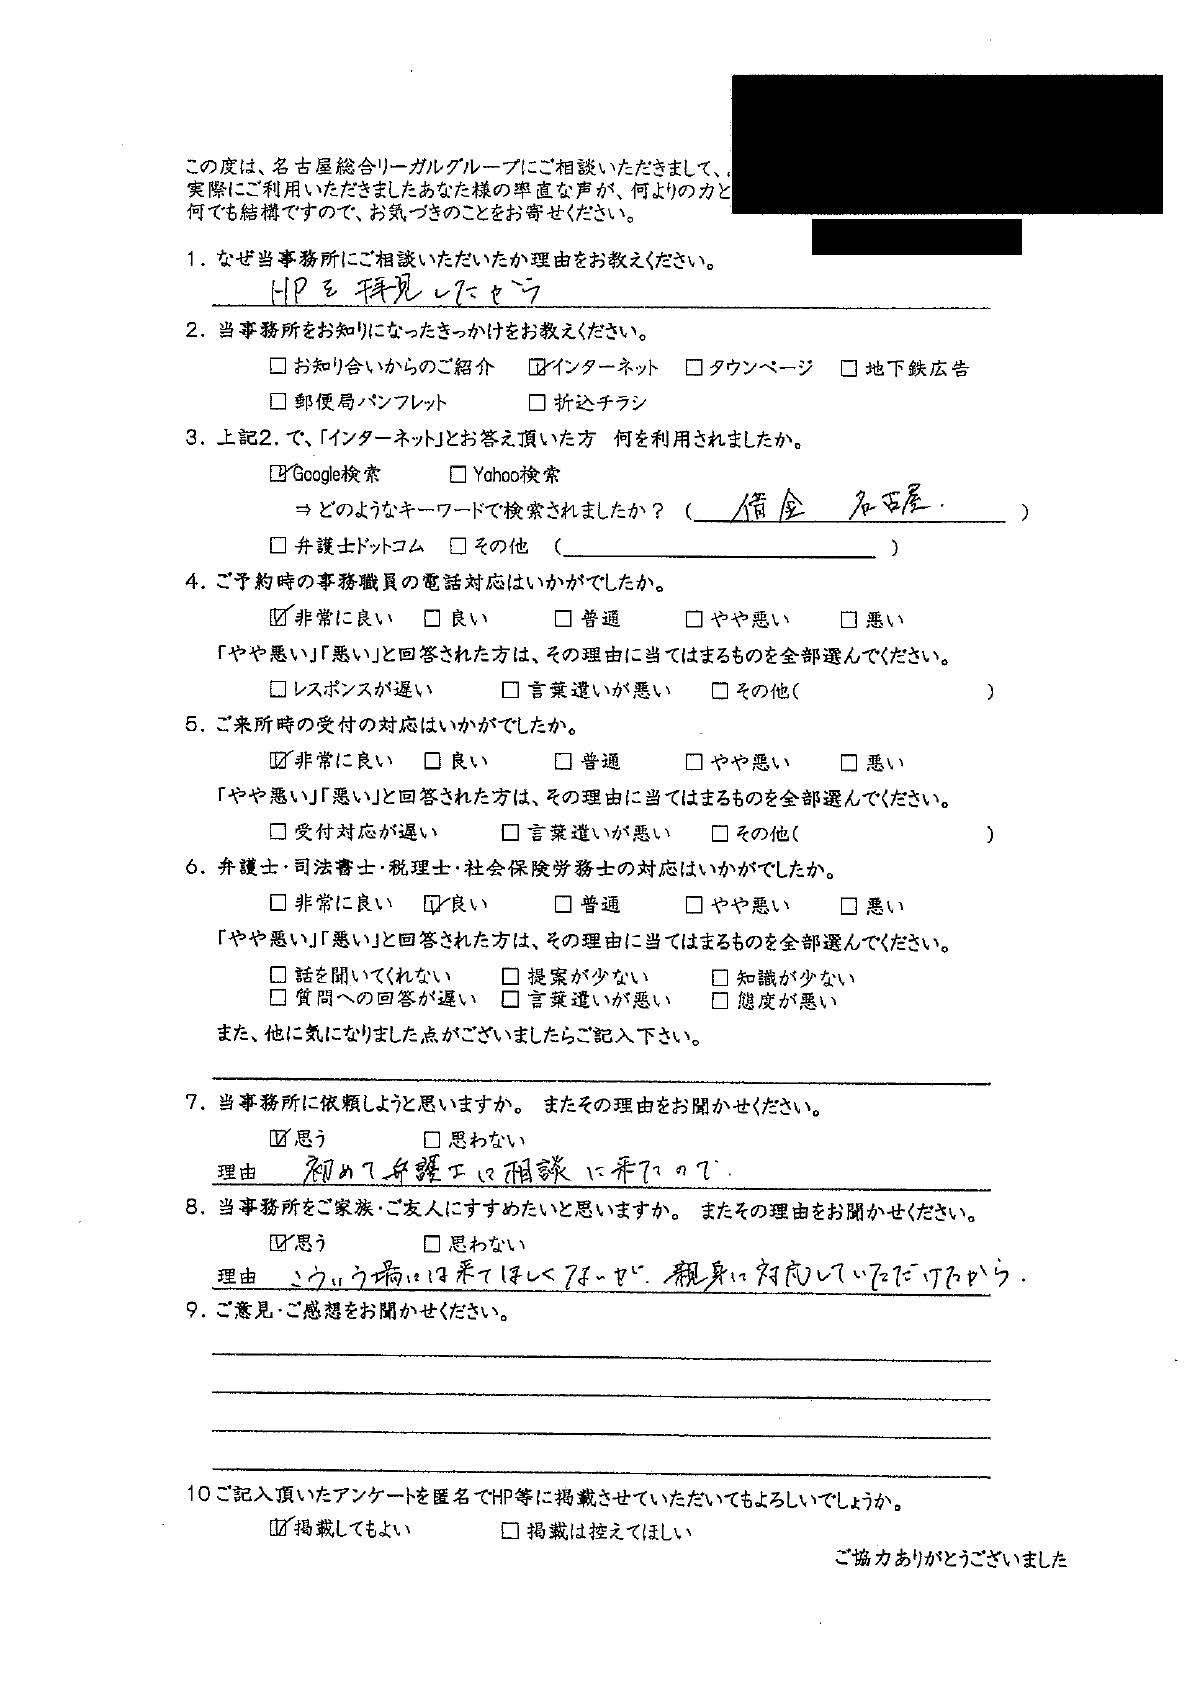 この度は、名古屋総合リーガルグループにご相談いただきまして、
実際にご利用いただきましたあなた様の率直な声が、何よりの力と
何でも結構ですので、お気づきのことをお寄せください。
1. なぜ当事務所にご相談いただいたか理由をお教えください。
HPを拝見したから
2. 当事務所をお知りになったきっかけをお教えください。
□ お知り合いからのご紹介 ☑インターネット □ タウンページ □ 地下鉄広告
□ 郵便局パンフレット □ 折込チラシ
3. 上記2. で、「インターネット」とお答え頂いた方 何を利用されましたか。
☑Google検索 □ Yahoo検索
⇒ どのようなキーワードで検索されましたか？ ( 借金 名古屋. )
□ 弁護士ドットコム □ その他 ( )
4. ご予約時の事務職員の電話対応はいかがでしたか。
☑非常に良い □ 良い □ 普通 □ やや悪い □ 悪い
「やや悪い」「悪い」と回答された方は、その理由に当てはまるものを全部選んでください。
□ レスポンスが遅い □ 言葉遣いが悪い □ その他( )
5. ご来所時の受付の対応はいかがでしたか。
☑非常に良い □ 良い □ 普通 □ やや悪い □ 悪い
「やや悪い」「悪い」と回答された方は、その理由に当てはまるものを全部選んでください。
□ 受付対応が遅い □ 言葉遣いが悪い □ その他( )
6. 弁護士・司法書士・税理士・社会保険労務士の対応はいかがでしたか。
□ 非常に良い ☑良い □ 普通 □ やや悪い □ 悪い
「やや悪い」「悪い」と回答された方は、その理由に当てはまるものを全部選んでください。
□ 話を聞いてくれない □ 提案が少ない □ 知識が少ない
□ 質問への回答が遅い □ 言葉遣いが悪い □ 態度が悪い
また、他に気になりました点がございましたらご記入下さい。
7. 当事務所に依頼しようと思いますか。 またその理由をお聞かせください。
☑思う □ 思わない
理由 初めて弁護士に相談に来たので.
8. 当事務所をご家族・ご友人にすすめたいと思いますか。 またその理由をお聞かせください。
☑思う □ 思わない
理由 こういう場には来てほしくないが、親身に対応していただけたから.
9. ご意見・ご感想をお聞かせください。
10ご記入頂いたアンケートを匿名でHP等に掲載させていただいてもよろしいでしょうか。
☑掲載してもよい □ 掲載は控えてほしい
ご協力ありがとうございました